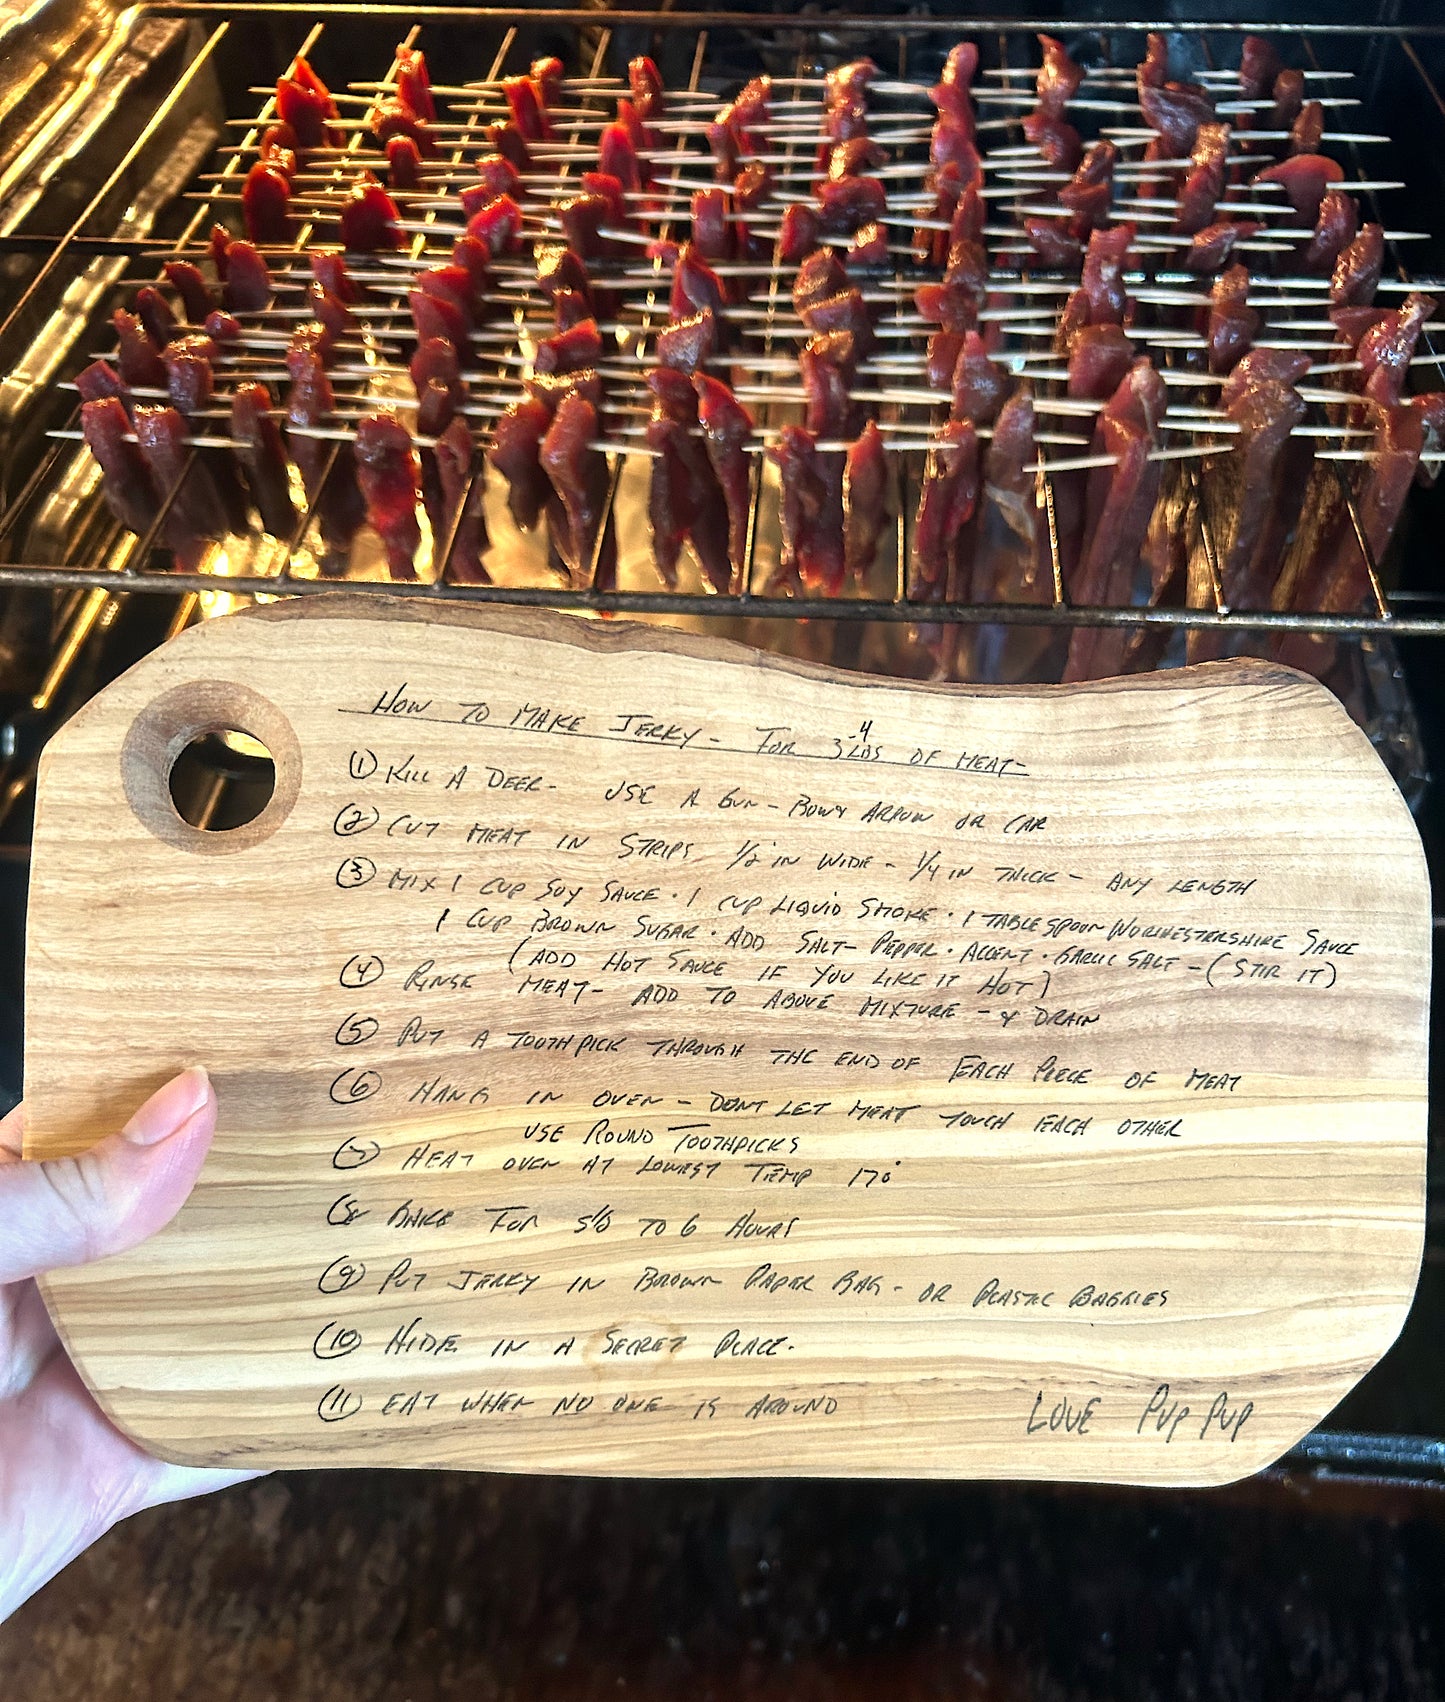 How to make Jerky - For 3-4 lbs of meat-
① Kill a deer - use a gun - bow & arrow or car
② Cut meat in strips 1/2 in wide - 1/4 in thick - any length
③ Mix 1 cup soy sauce · 1 cup liquid smoke · 1 tablespoon Worchestershire sauce
1 cup brown sugar · add salt - pepper · Accent · garlic salt - (stir it)
(add hot sauce if you like it hot)
④ Rinse meat - add to above mixture - & drain
⑤ Put a toothpick through the end of each piece of meat
⑥ Hang in oven - dont let meat touch each other
use round toothpicks
⑦ Heat oven at lowest temp 170°
⑧ Bake for to 6 hours
⑨ Put jerky in brown paper bag - or plastic baggies
⑩ Hide in a secret place.
⑪ Eat when no one is around
Love Pup Pup